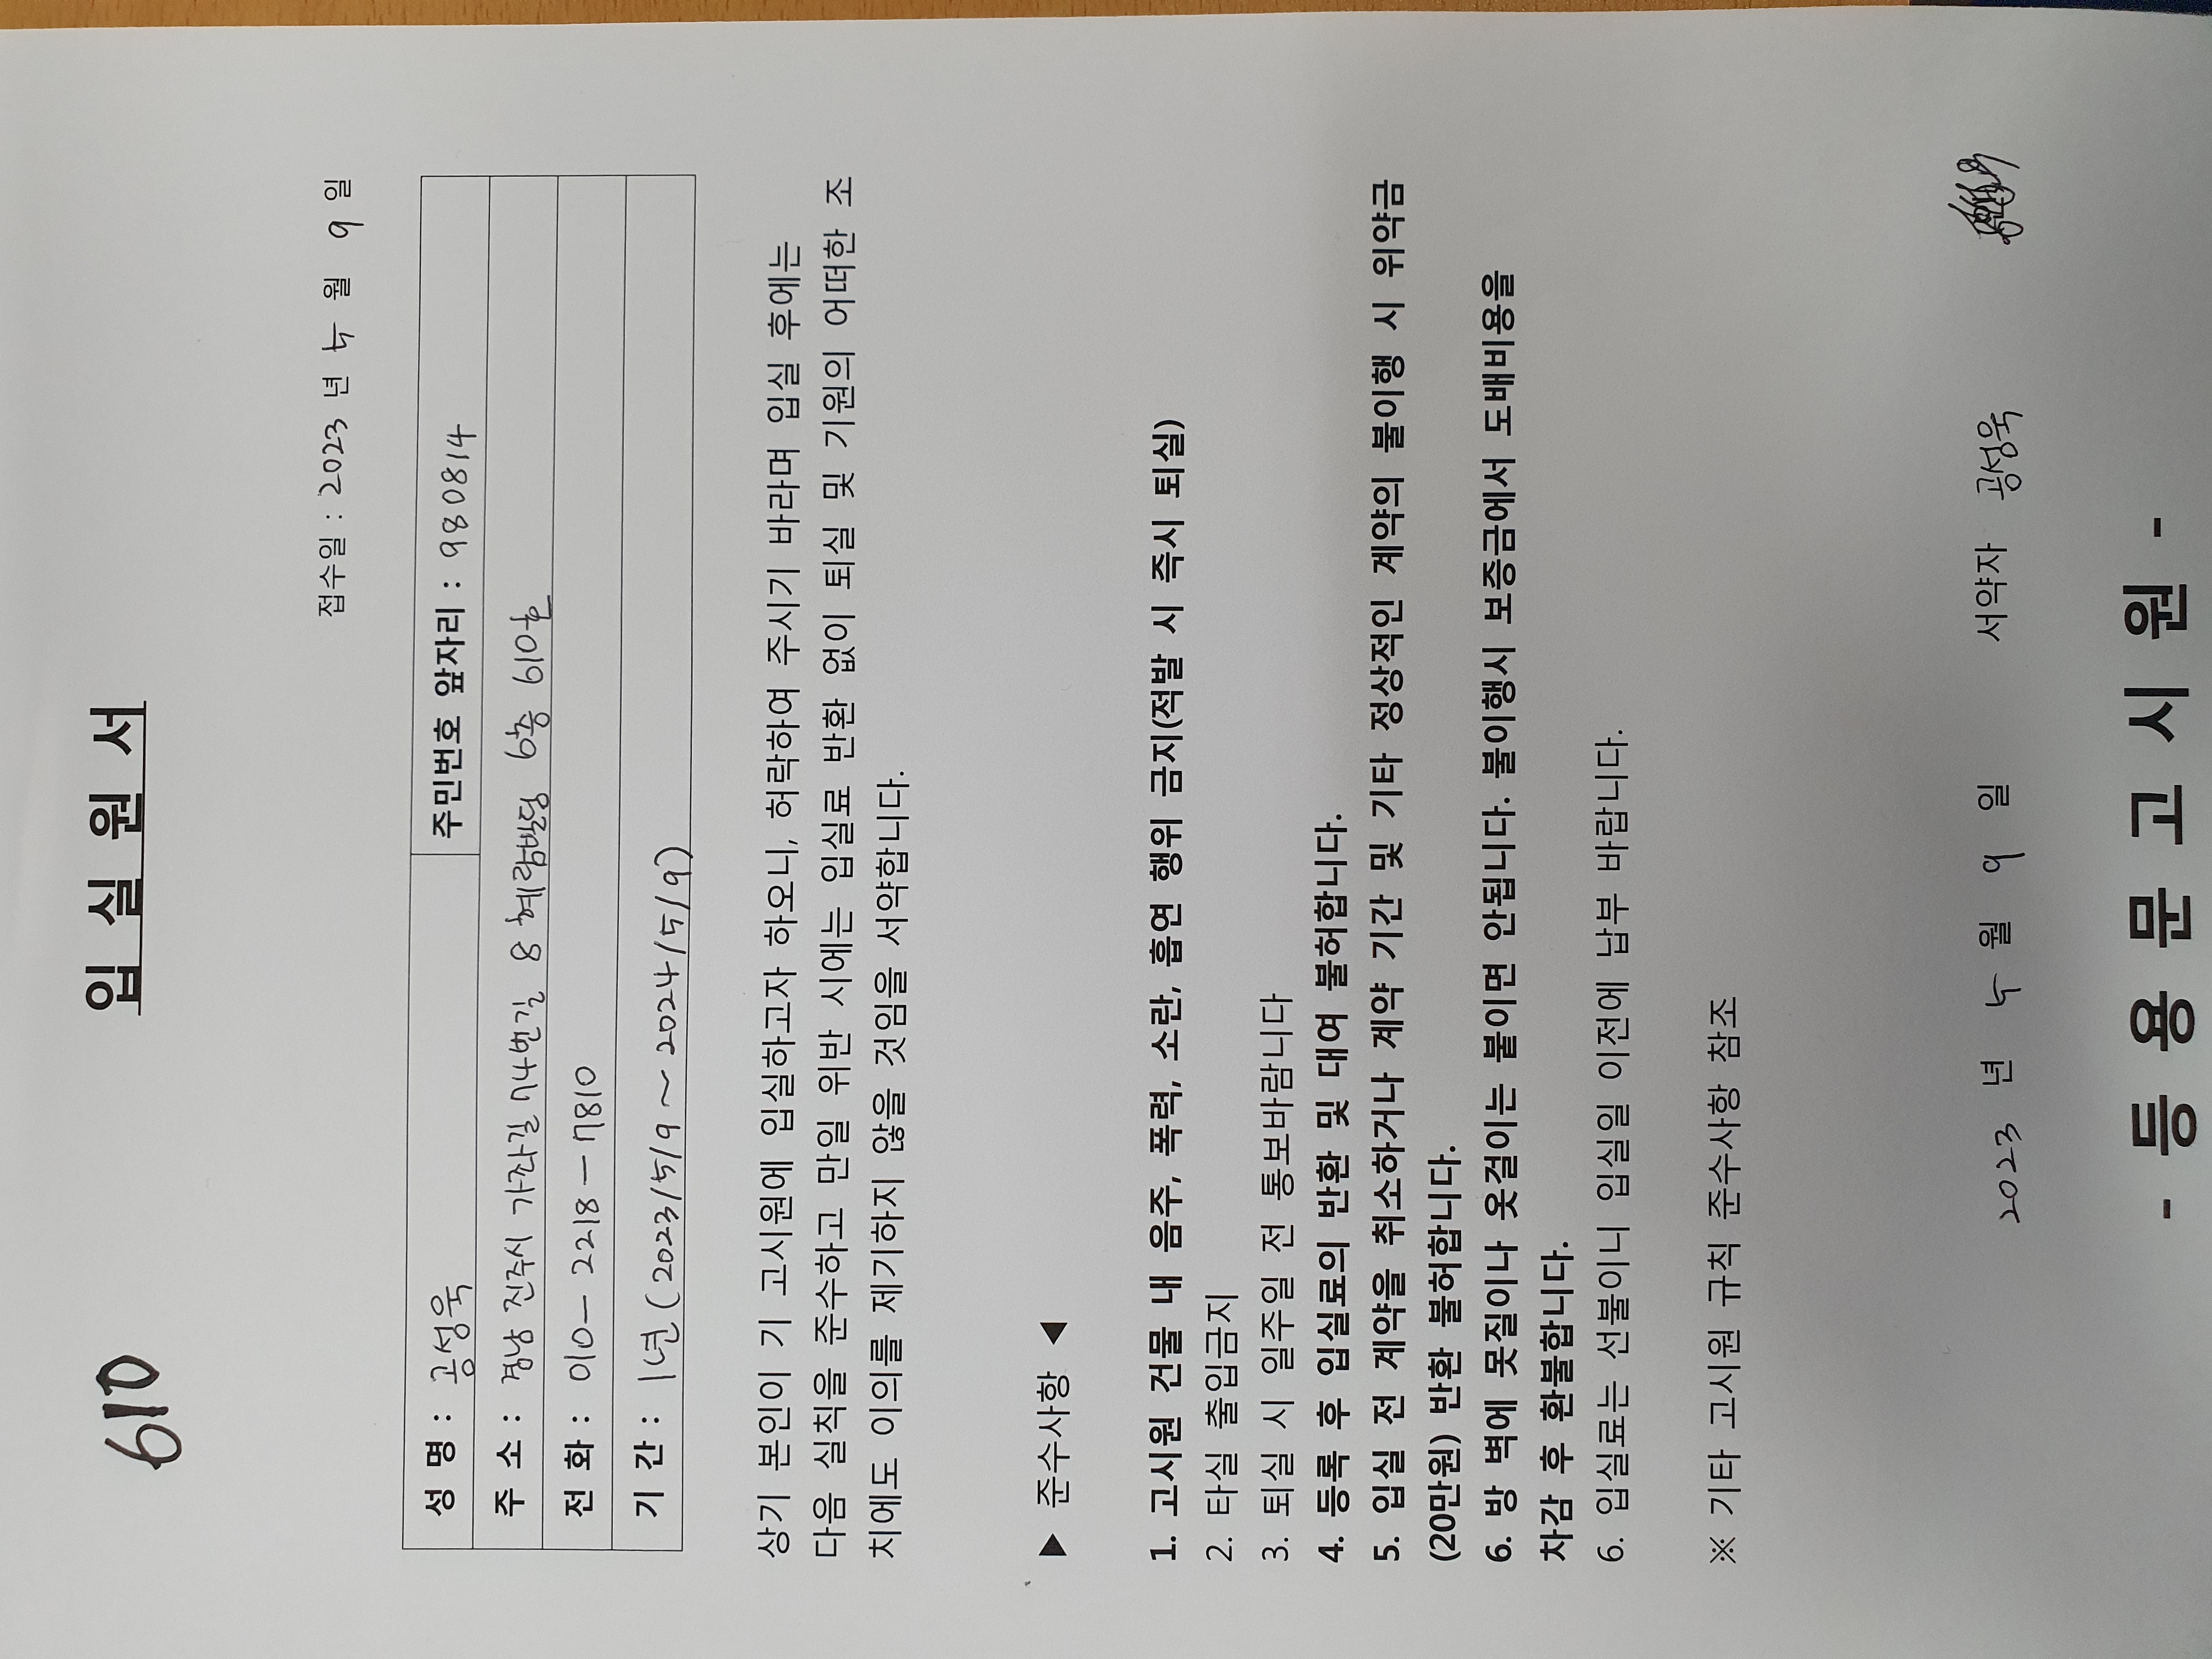 610
입 실 원 서
접수일 : 2023 년 5 월 9 일
성 명 : 공성욱 주민번호 앞자리 : 980814
주 소 : 경남 진주시 가좌길 74번길 8 혜람빌딩 6층 610호
전 화 : 010 - 2218 - 7810
기 간 : 1년 (2023/5/9 ~ 2024/5/9)
상기 본인이 기 고시원에 입실하고자 하오니, 허락하여 주시기 바라며 입실 후에는
다음 실칙을 준수하고 만일 위반 시에는 입실료 반환 없이 퇴실 및 기원의 어떠한 조
치에도 이의를 제기하지 않을 것임을 서약합니다.
▶ 준수사항 ◀
1. 고시원 건물 내 음주, 폭력, 소란, 흡연 행위 금지(적발 시 즉시 퇴실)
2. 타실 출입금지
3. 퇴실 시 일주일 전 통보바람니다
4. 등록 후 입실료의 반환 및 대여 불허합니다.
5. 입실 전 계약을 취소하거나 계약 기간 및 기타 정상적인 계약의 불이행 시 위약금
(20만원) 반환 불허합니다.
6. 방 벽에 못질이나 옷걸이는 붙이면 안됩니다. 불이행시 보증금에서 도배비용을
차감 후 환불합니다.
6. 입실료는 선불이니 입실일 이전에 납부 바랍니다.
※ 기타 고시원 규칙 준수사항 참조
2023 년 5 월 9 일 서약자 공성욱
- 등 용 문 고 시 원 -